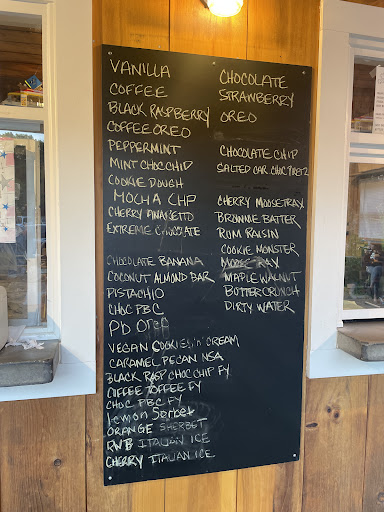 VANILLA
COFFEE
BLACK RASPBERRY
COFFEE OREO
PEPPERMINT
MINT CHOC CHIP
COOKIE DOUGH
MOCHA CHP
CHERRY AMARETTO
EXTREME CHOCOLATE
CHOCOLATE BANANA
COCONUT ALMOND BAR
PISTACHIO
CHOC PBC
Pb Oreo
VEGAN COOKIES 'n' CREAM
CARAMEL PECAN NSA
BLACK RASP CHOC CHIP FY
COFFEE TOFFEE FY
CHOC PBC FY
lemon Sorbet
ORANGE SHERBET
RWB ITALIAN ICE
CHERRY ITALIAN ICE
CHOCOLATE
STRAWBERRY
OREO
CHOCOLATE CHIP
SALTED CAR CHOC PRETZ
CHERRY MOOSETRAX
BROWNIE BATTER
RUM RAISIN
COOKIE MONSTER
MOOSE TRAX
MAPLE WALNUT
BUTTER CRUNCH
DIRTY WATER